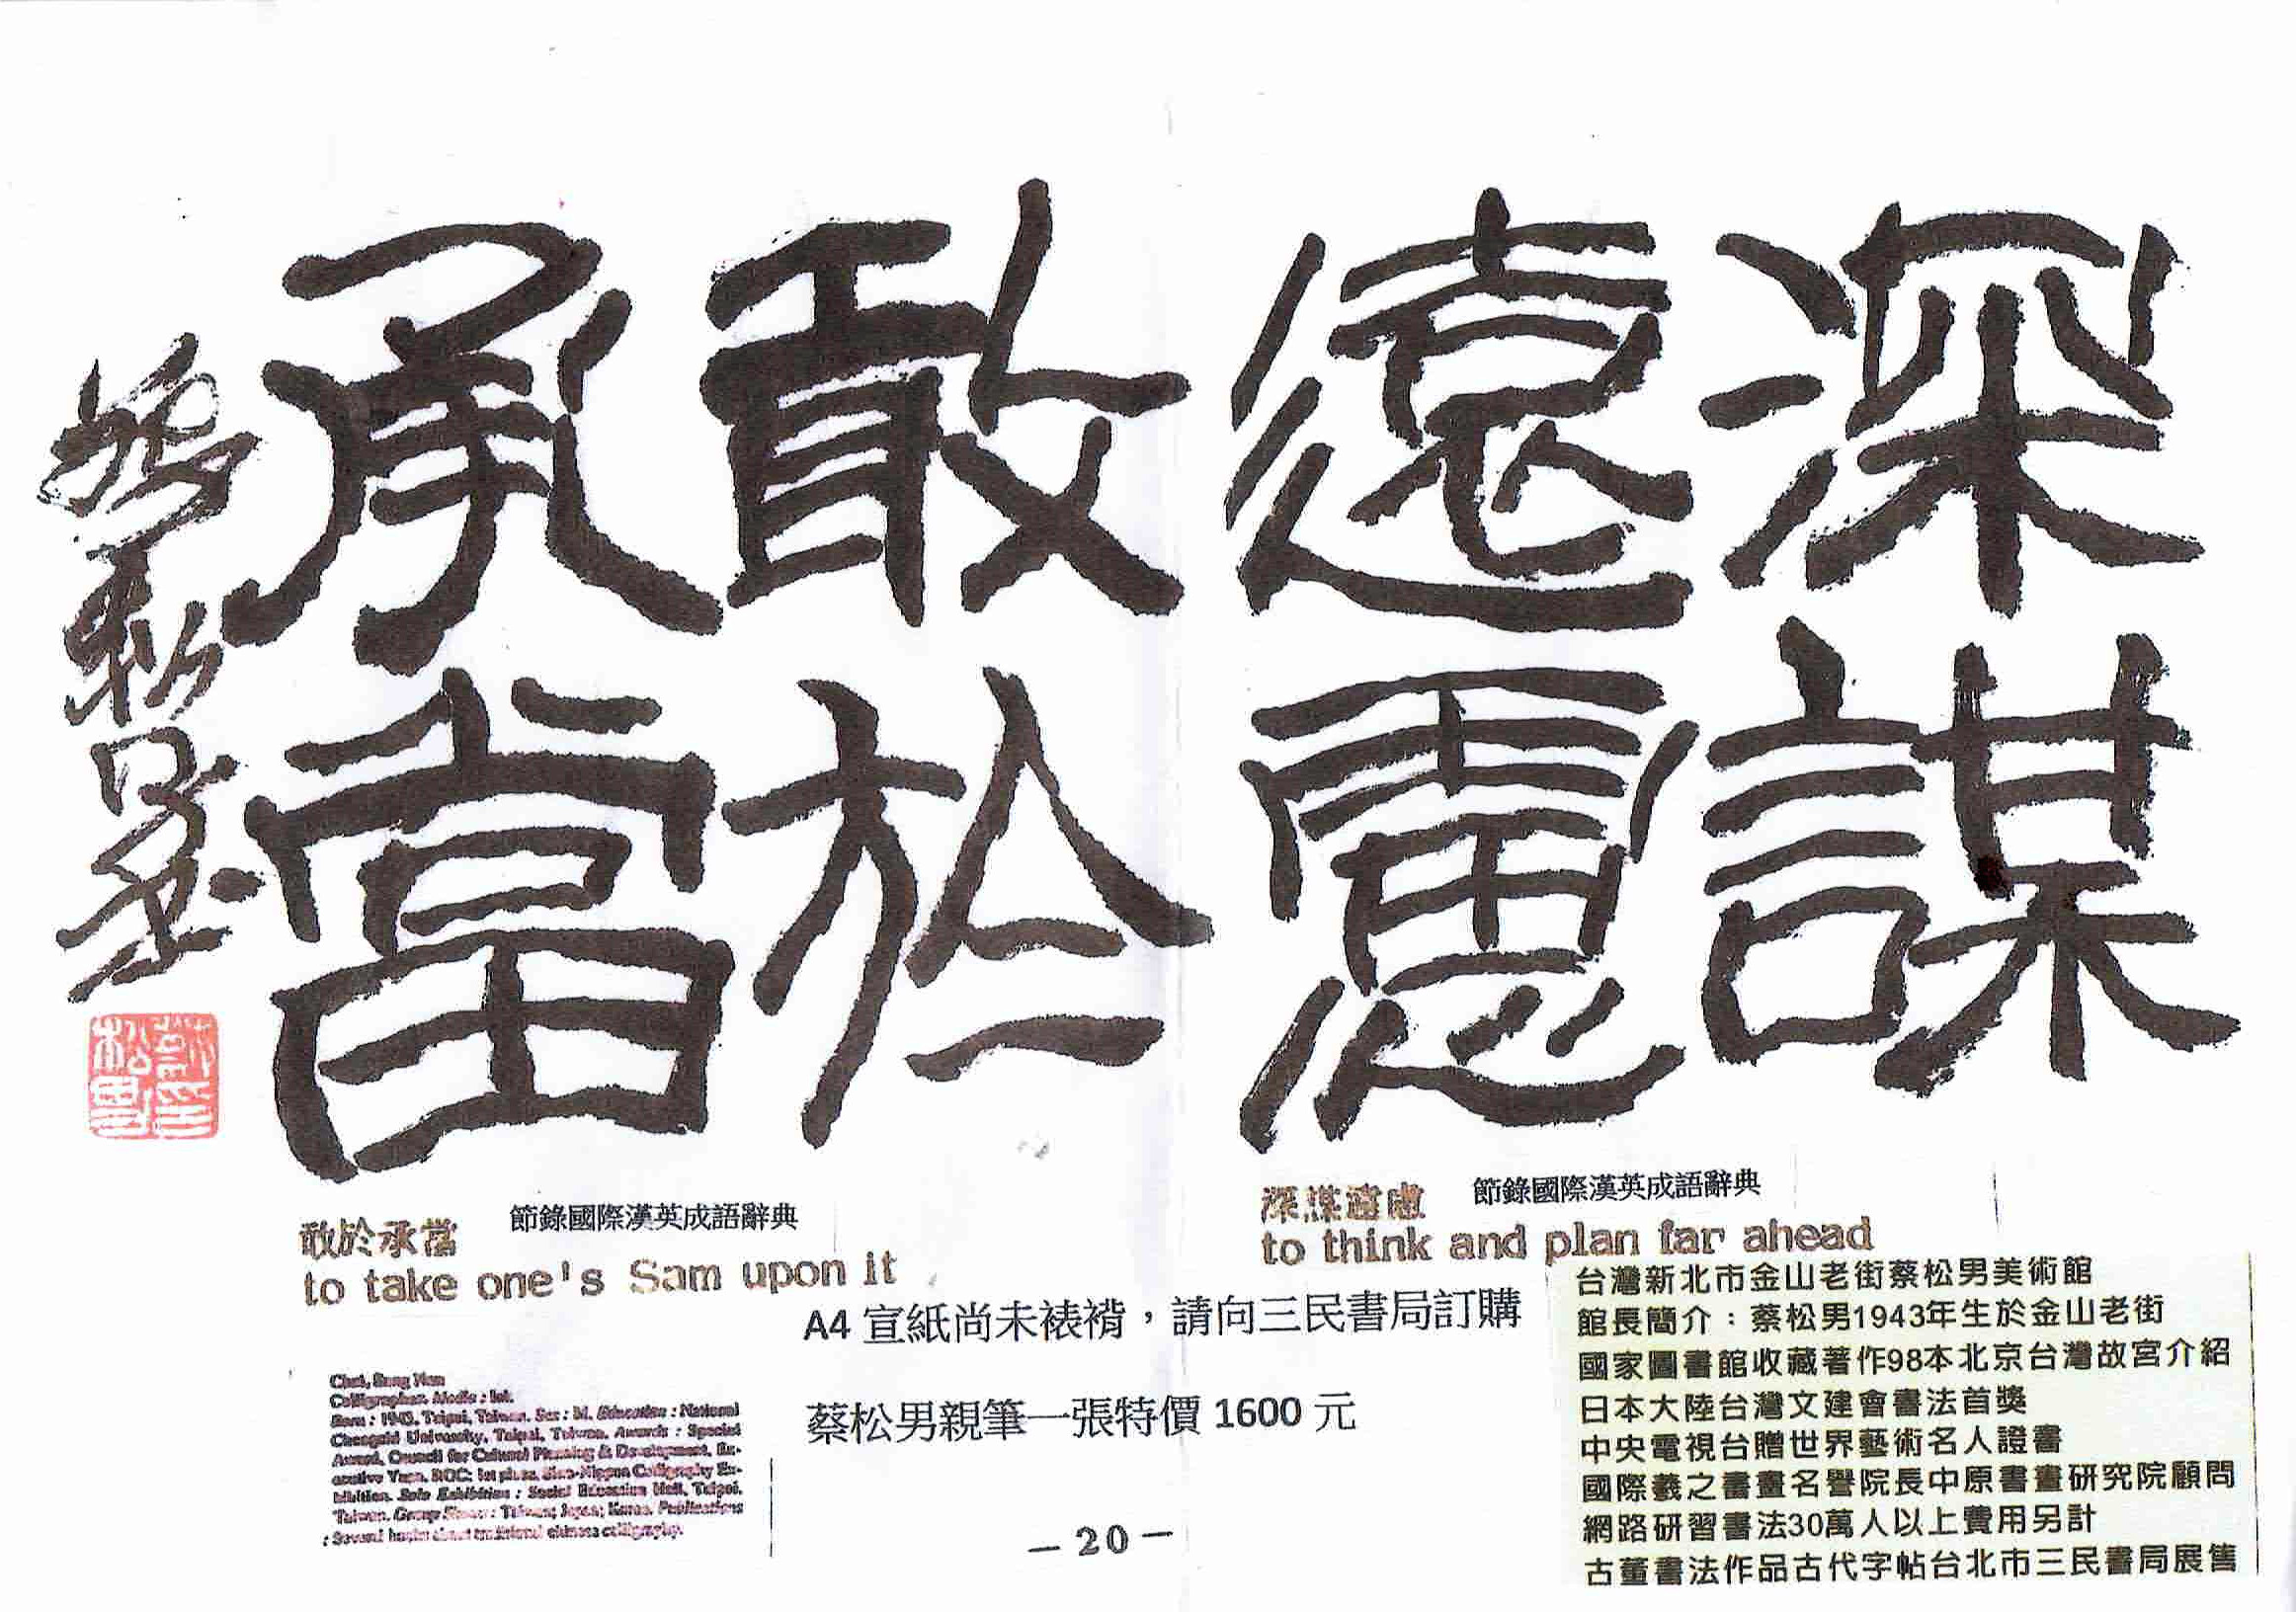 深謀
遠慮
敢於
承當
蔡松男
深謀遠慮
節錄國際漢英成語辭典
to think and plan far ahead
敢於承當
節錄國際漢英成語辭典
to take one's Sam upon it
A4 宣紙尚未裱褙，請向三民書局訂購
蔡松男親筆一張特價 1600 元
台灣新北市金山老街蔡松男美術館
館長簡介：蔡松男1943年生於金山老街
國家圖書館收藏著作98本北京台灣故宮介紹
日本大陸台灣文建會書法首獎
中央電視台贈世界藝術名人證書
國際羲之書畫名譽院長中原書畫研究院顧問
網路研習書法30萬人以上費用另計
古董書法作品古代字帖台北市三民書局展售
Calligrapher. Media : Ink.
Born : 1943, Taipei, Taiwan. Sex : M. Education : National
Chengchi University, Taipei, Taiwan. Awards : Special
Award, Council for Cultural Planning & Development, Ex-
ecutive Yuan, ROC; 1st place, Sino-Nippon Calligraphy Ex-
hibition. Solo Exhibition : Social Education Hall, Taipei,
Taiwan. Group Shows : Taiwan; Japan; Korea. Publications
: Several books about traditional chinese calligraphy.
— 20 —